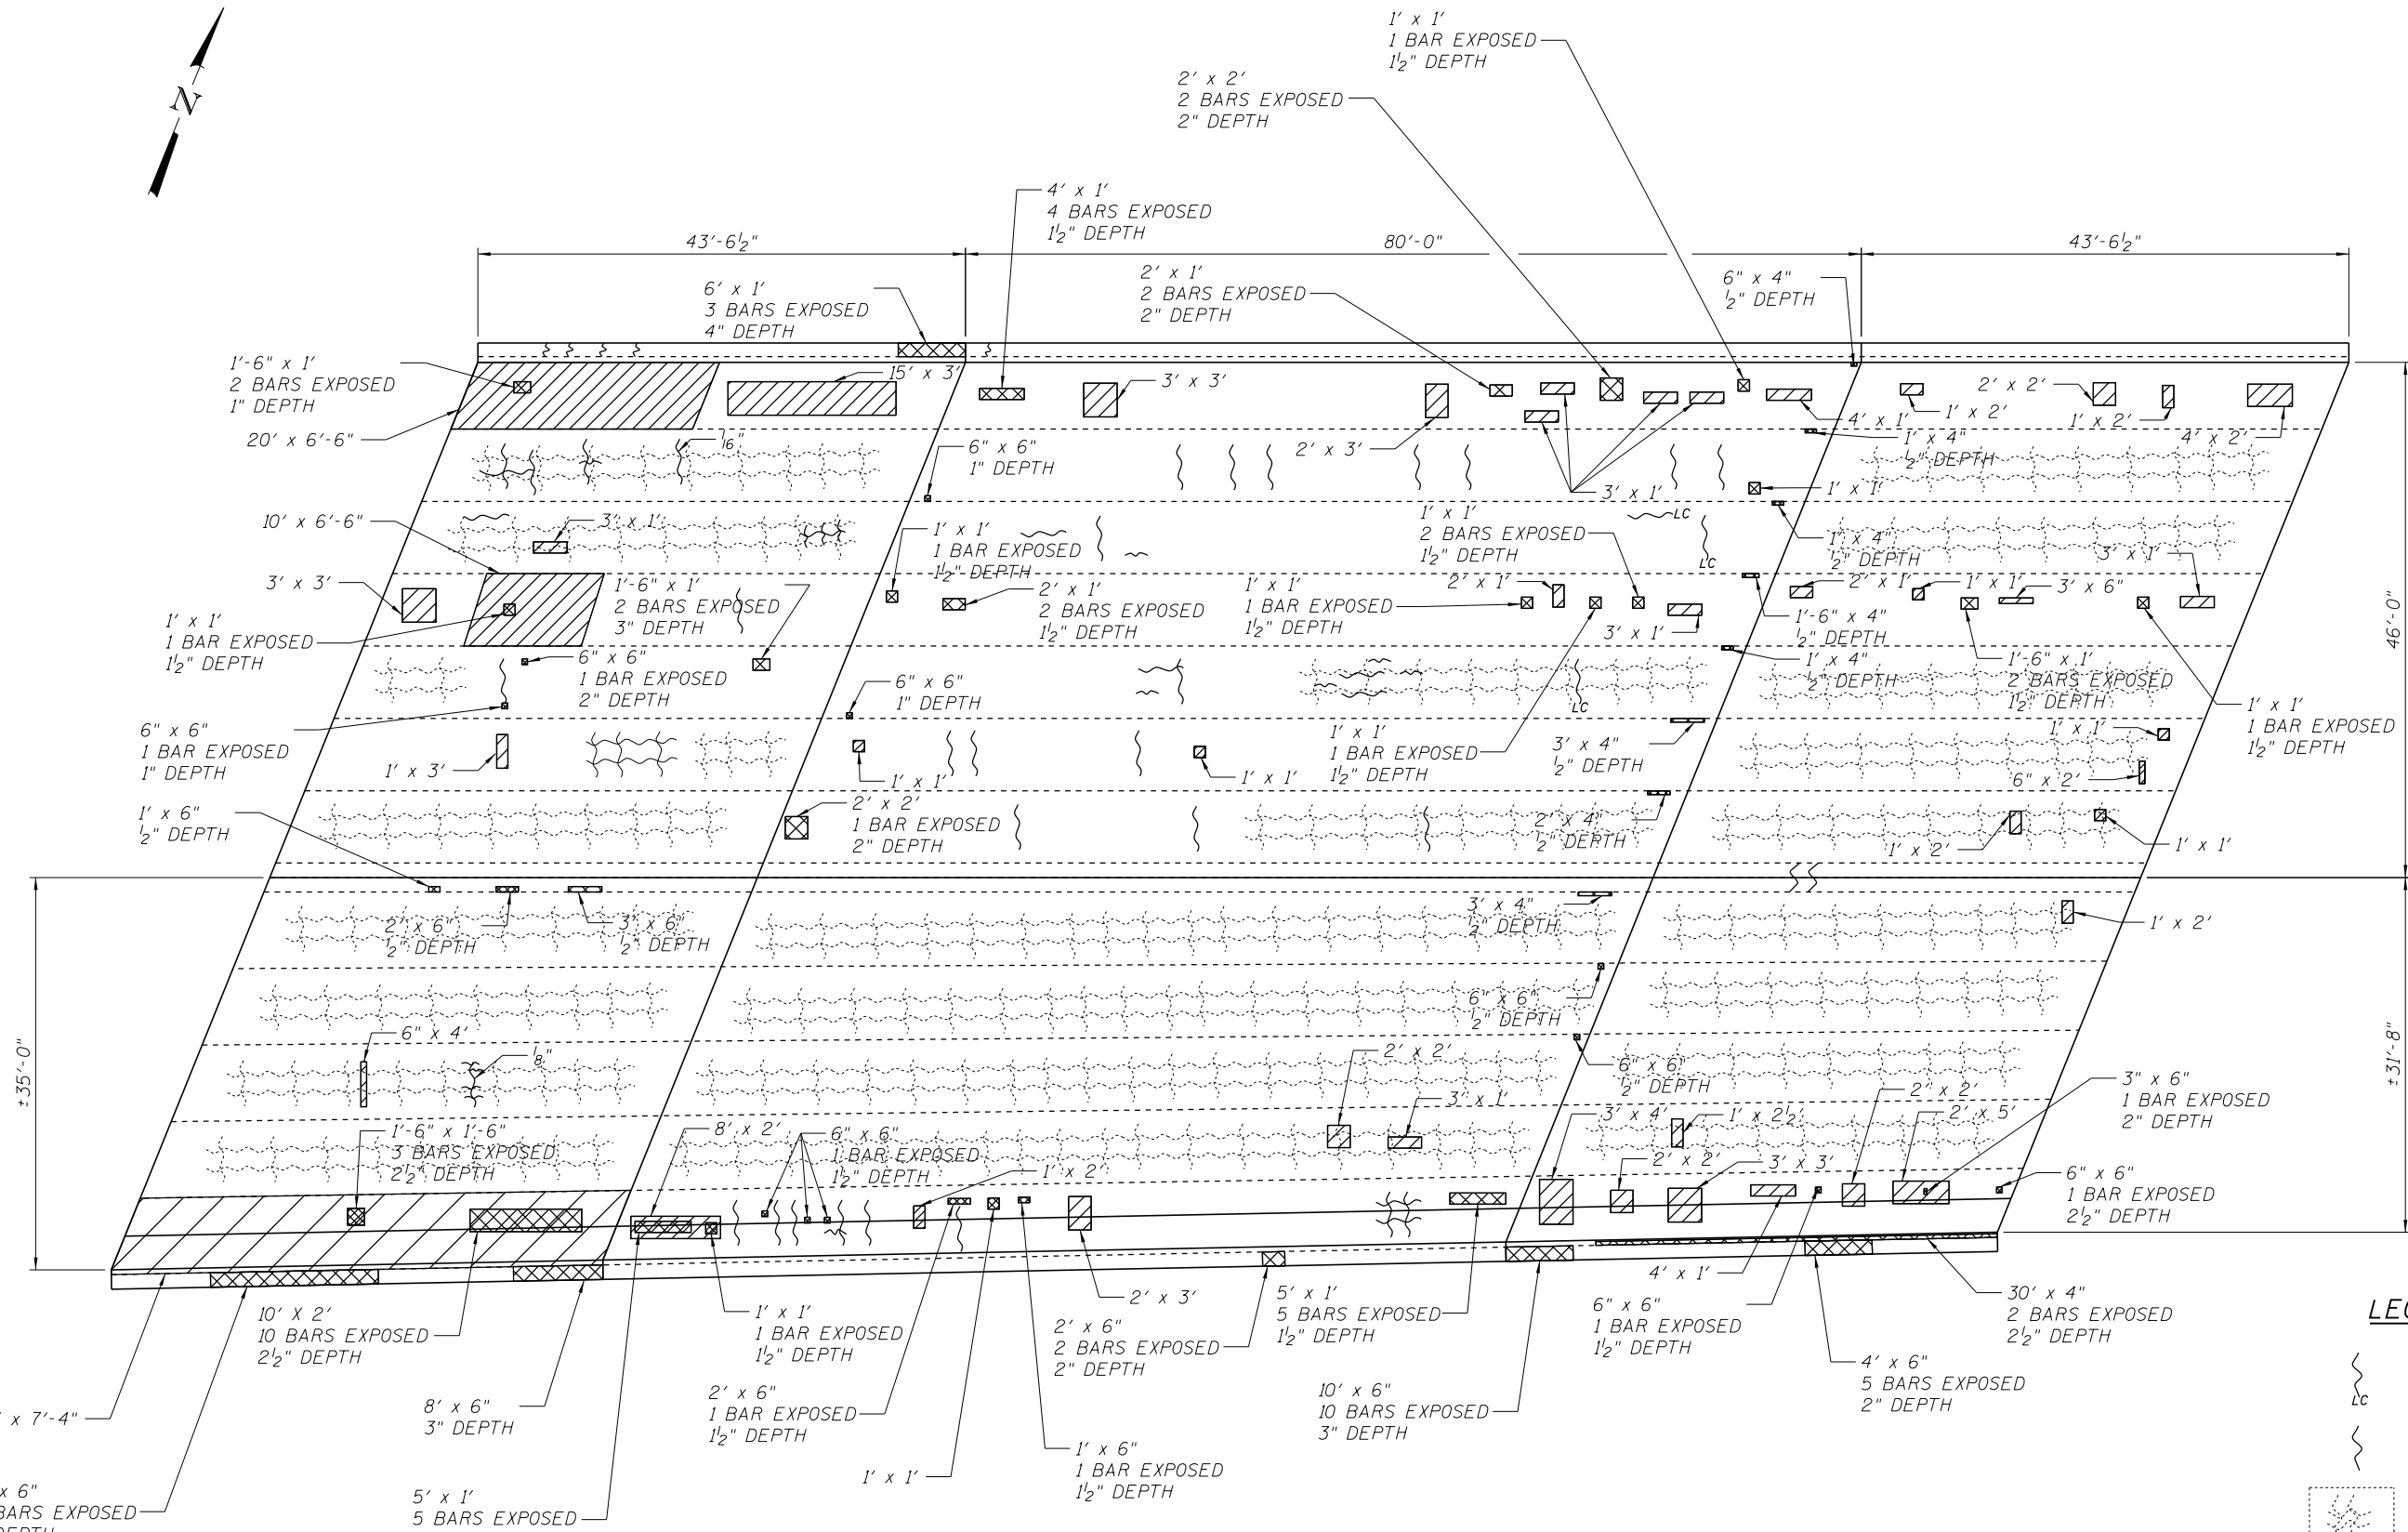 1' x 1'
1 BAR EXPOSED
1 1/2" DEPTH
2' x 2'
2 BARS EXPOSED
2" DEPTH
N
4' x 1'
4 BARS EXPOSED
1 1/2" DEPTH
43'-6 1/2"
80'-0"
43'-6 1/2"
6' x 1'
3 BARS EXPOSED
4" DEPTH
2' x 1'
2 BARS EXPOSED
2" DEPTH
6" x 4"
1/2" DEPTH
1'-6" x 1'
2 BARS EXPOSED
1" DEPTH
15' x 3'
3' x 3'
2' x 2'
20' x 6'-6"
1/16"
6" x 6"
1" DEPTH
2' x 3'
4' x 1'
1' x 2'
1' x 2'
4' x 2'
1' x 4"
1/2" DEPTH
3' x 1'
1' x 1'
10' x 6'-6"
3' x 1'
1' x 1'
1 BAR EXPOSED
1 1/2" DEPTH
1' x 1'
2 BARS EXPOSED
1 1/2" DEPTH
LC
LC
1' x 4"
1/2" DEPTH
3' x 1'
3' x 3'
1'-6" x 1'
2 BARS EXPOSED
3" DEPTH
2' x 1'
2 BARS EXPOSED
1 1/2" DEPTH
1' x 1'
1 BAR EXPOSED
1 1/2" DEPTH
2' x 1'
3' x 1'
2' x 1'
1' x 1'
3' x 6"
1'-6" x 4"
1/2" DEPTH
46'-0"
1' x 1'
1 BAR EXPOSED
1 1/2" DEPTH
6" x 6"
1 BAR EXPOSED
2" DEPTH
6" x 6"
1" DEPTH
1' x 4"
1/2" DEPTH
1'-6" x 1'
2 BARS EXPOSED
1 1/2" DEPTH
LC
1' x 1'
1 BAR EXPOSED
1 1/2" DEPTH
6" x 6"
1 BAR EXPOSED
1" DEPTH
1' x 3'
1' x 1'
1' x 1'
1' x 1'
1 BAR EXPOSED
1 1/2" DEPTH
3' x 4"
1/2" DEPTH
1' x 1'
6" x 2'
1' x 6"
1/2" DEPTH
2' x 2'
1 BAR EXPOSED
2" DEPTH
2' x 4"
1/2" DEPTH
1' x 2'
1' x 1'
2' x 6"
1/2" DEPTH
3' x 6"
1/2" DEPTH
3' x 4"
1/2" DEPTH
1' x 2'
±35'-0"
±31'-8"
6" x 6"
1/2" DEPTH
6" x 4'
1/8"
2' x 2'
6" x 6"
1/2" DEPTH
3' x 1'
3' x 4'
1' x 2 1/2'
2' x 2'
2' x 5'
3" x 6"
1 BAR EXPOSED
2" DEPTH
1'-6" x 1'-6"
3 BARS EXPOSED
2 1/2" DEPTH
8' x 2'
6" x 6"
1 BAR EXPOSED
1 1/2" DEPTH
1' x 2'
2' x 2'
3' x 3'
6" x 6"
1 BAR EXPOSED
2 1/2" DEPTH
10' X 2'
10 BARS EXPOSED
2 1/2" DEPTH
1' x 1'
1 BAR EXPOSED
1 1/2" DEPTH
2' x 3'
2' x 6"
2 BARS EXPOSED
2" DEPTH
5' x 1'
5 BARS EXPOSED
1 1/2" DEPTH
4' x 1'
6" x 6"
1 BAR EXPOSED
1 1/2" DEPTH
30' x 4"
2 BARS EXPOSED
2 1/2" DEPTH
LEG
x 7'-4"
8' x 6"
3" DEPTH
2' x 6"
1 BAR EXPOSED
1 1/2" DEPTH
1' x 1'
1' x 6"
1 BAR EXPOSED
1 1/2" DEPTH
10' x 6"
10 BARS EXPOSED
3" DEPTH
4' x 6"
5 BARS EXPOSED
2" DEPTH
LC
x 6"
BARS EXPOSED
DEPTH
5' x 1'
5 BARS EXPOSED